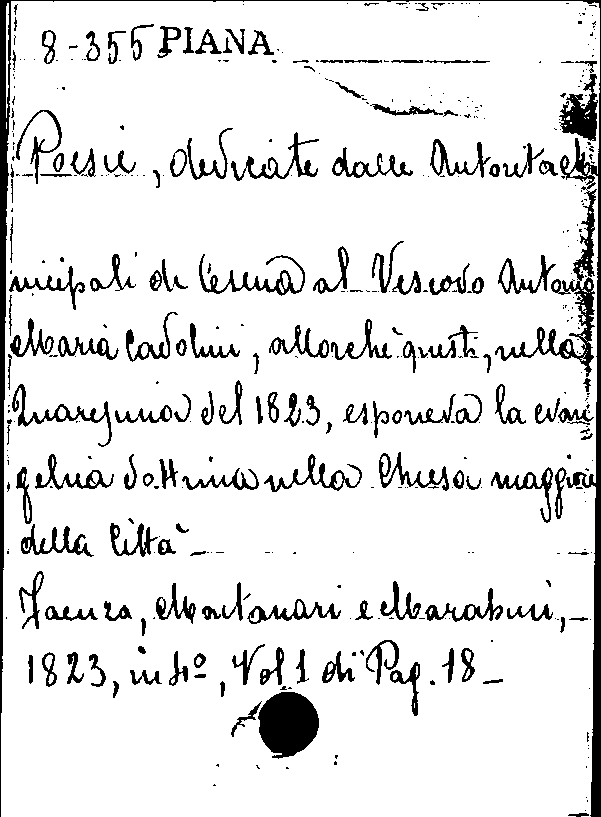 8-355 PIANA
Poesie, dedicate dalle Autorità M
nicipali di Cesena al Vescovo Antonio
Maria Cadolini, allorchè questi, nella
Quaresima del 1823, esponeva la evan
gelica dottrina nella Chiesa maggiore
della Città_
Faenza, Montanari e Marabini,_
1823, in 4º, Vol 1 di Pag. 18_